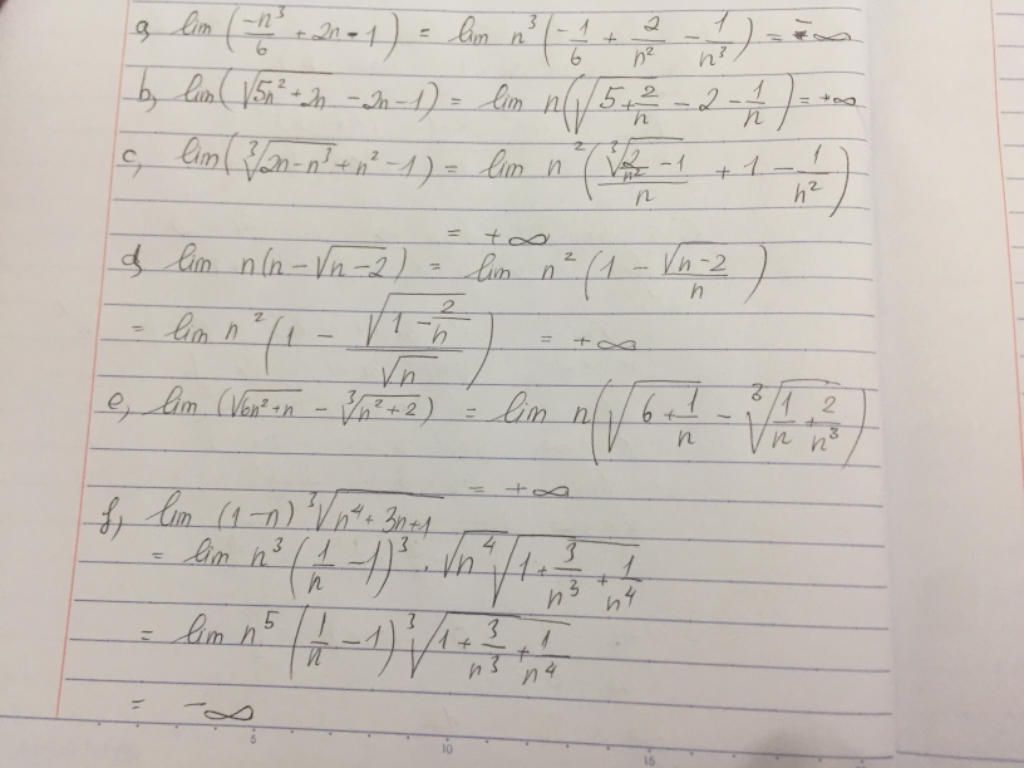 a, lim (-n³/6 + 2n - 1) = lim n³(-1/6 + 2/n² - 1/n³) = -∞
b, lim(√(5n² + 2n) - 2n - 1) = lim n(√(5 + 2/n) - 2 - 1/n) = +∞
c, lim(∛(2n - n³) + n² - 1) = lim n²(∛(2/n² - 1)/n + 1 - 1/n²)
= +∞
d, lim n(n - √(n - 2)) = lim n²(1 - √(n - 2)/n)
= lim n²(1 - √(1 - 2/n)/√n) = +∞
e, lim (√(6n² + n) - ∛(n² + 2)) = lim n(√(6 + 1/n) - ∛(1/n + 2/n³))
= +∞
f, lim (1 - n) ∛(n⁴ + 3n + 1)
= lim n³(1/n - 1)³ . √n⁴ √(1 + 3/n³ + 1/n⁴)
= lim n⁵(1/n - 1) ∛(1 + 3/n³ + 1/n⁴)
= -∞
5 10 15